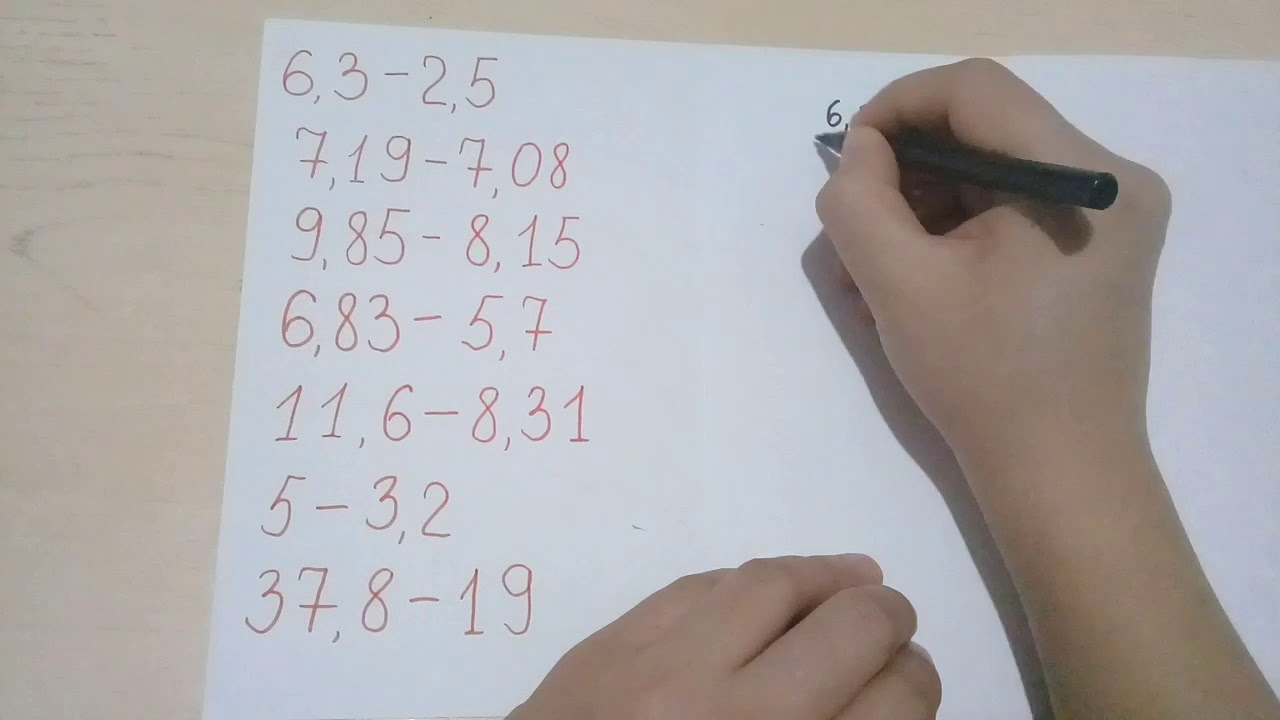 6,3-2,5
7,19-7,08
9,85-8,15
6,83-5,7
11,6-8,31
5-3,2
37,8-19
6,